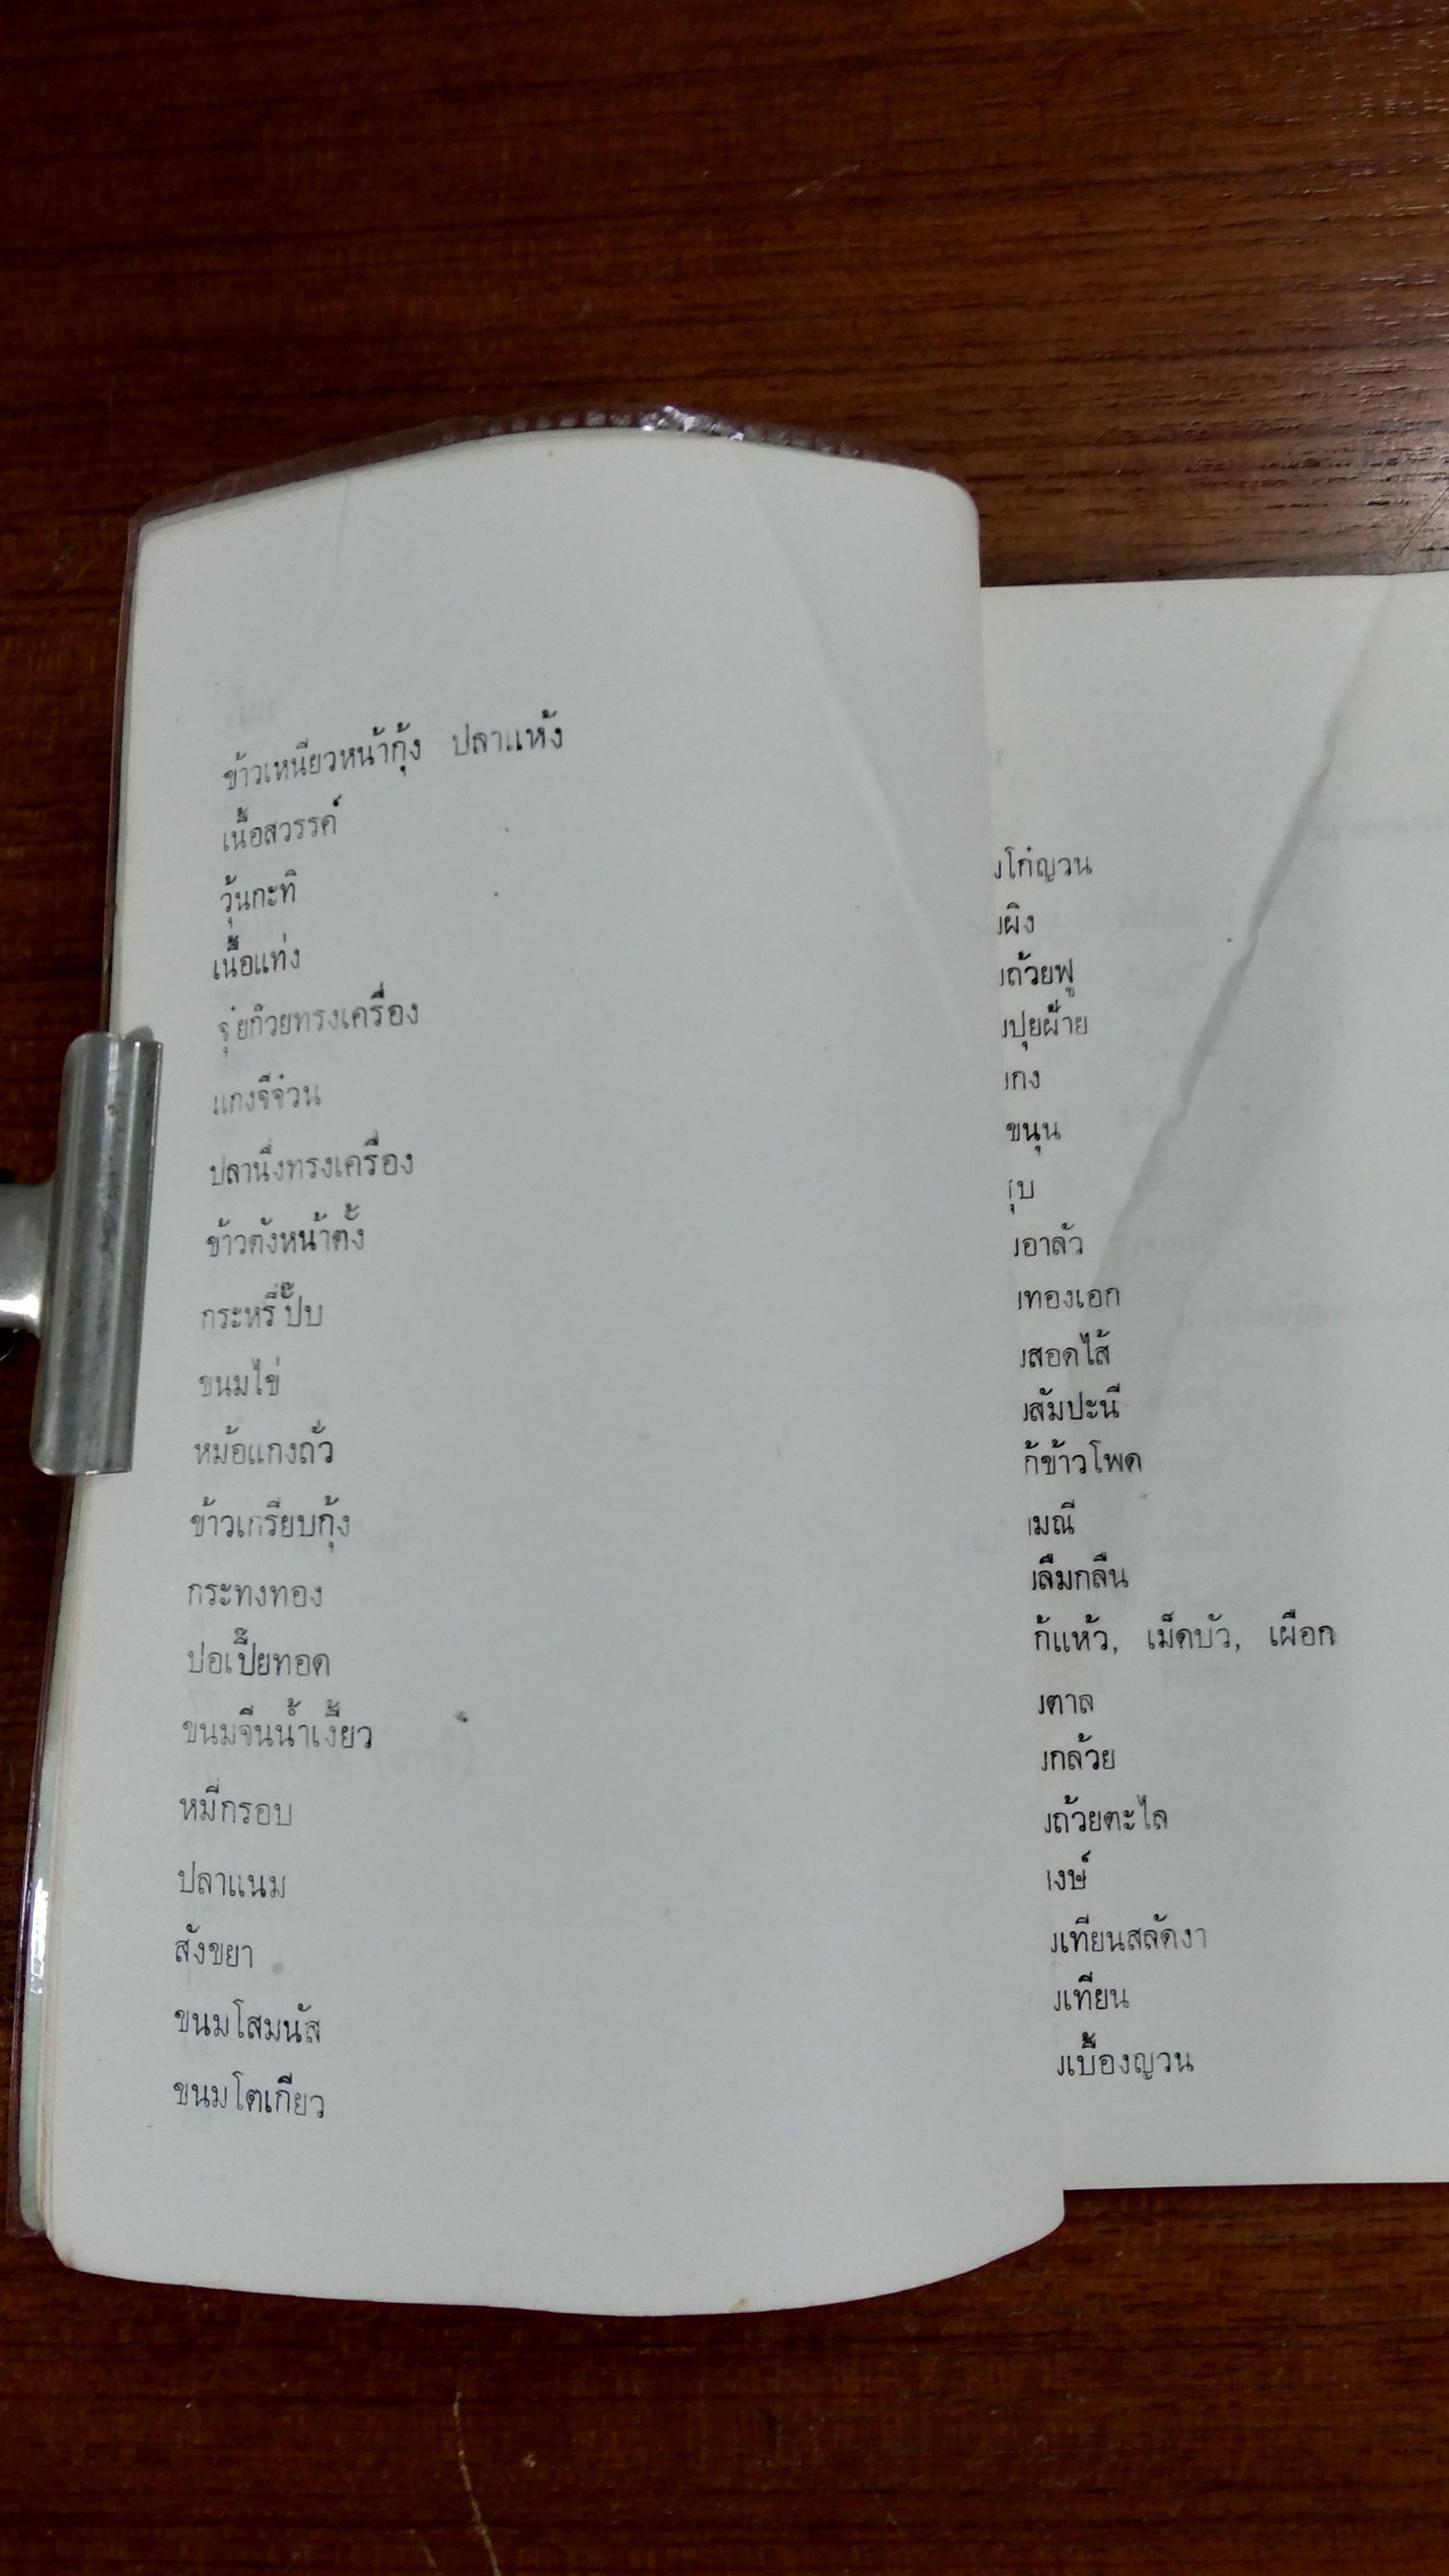 ข้าวเหนียวหน้ากุ้ง ปลาแห้ง
เนื้อสวรรค์
วุ้นกะทิ
เนื้อแท่ง
จุ๋ยก๊วยทรงเครื่อง
แกงจีจ๋วน
ปลานึ่งทรงเครื่อง
ข้าวตังหน้าตั้ง
กระหรี่ปั๊บ
ขนมไข่
หม้อแกงถั่ว
ข้าวเกรียบกุ้ง
กระทงทอง
ปอเปี๊ยทอด
ขนมจีนน้ำเงี้ยว
หมี่กรอบ
ปลาแนม
สังขยา
ขนมโสมนัส
ขนมโตเกียว
โก๋ญวน
ผิง
ถ้วยฟู
ปุยฝ้าย
เกง
ขนุน
อาลัว
ทองเอก
สอดไส้
สัมปะนี
ข้าวโพด
มณี
ลืมกลืน
แห้ว, เม็ดบัว, เผือก
ตาล
กล้วย
ถ้วยตะไล
งษ์
เทียนสลัดงา
เทียน
เบื้องญวน